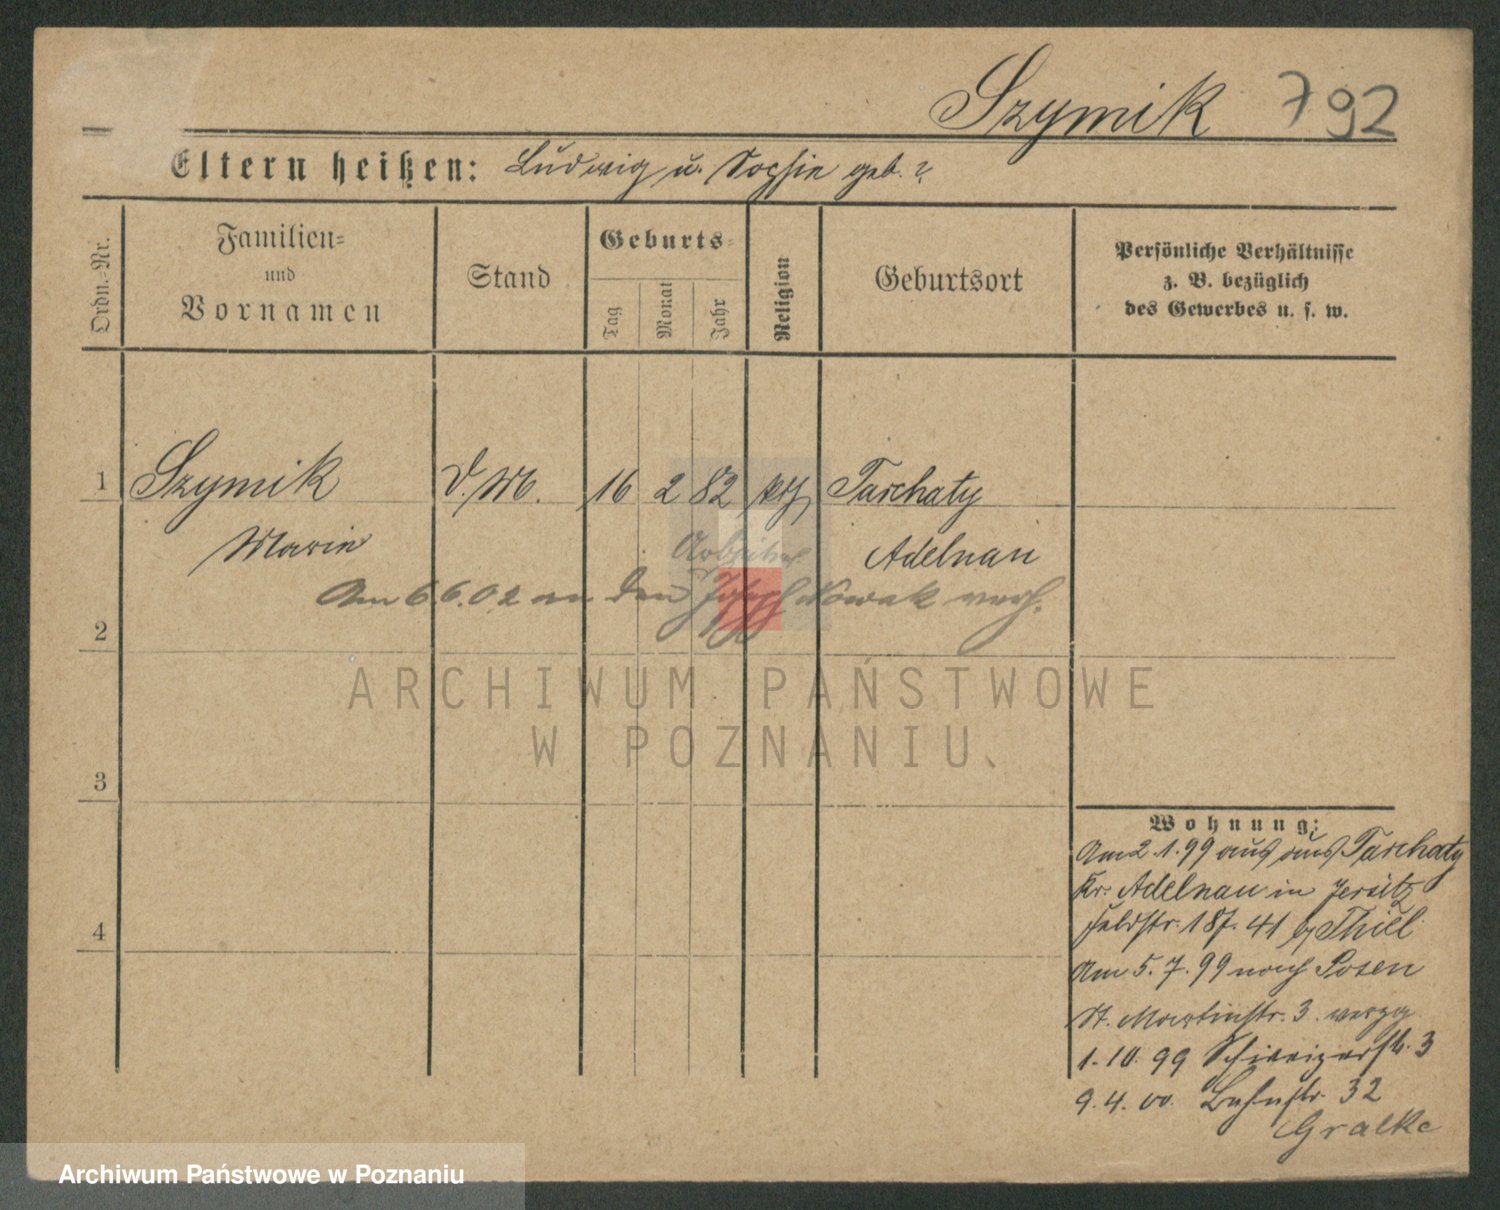 Szymik 792
Eltern heißen: Ludwig u. Sophie geb. ?
Ordn.-Nr.
Familien-
und
Vornamen
Stand
Geburts-
Tag
Monat
Jahr
Religion
Geburtsort
Persönliche Verhältnisse
z. B. bezüglich
des Gewerbes u. s. w.
1 Szymik D.M. 16 2 82 kth Tarchaty
Marie Adelnau
Arbeiter
Am 6.6.02 an den Joseph Nowak verh.
2
3
4
ARCHIWUM PAŃSTWOWE
W POZNANIU.
Wohnung:
Am 2.1.99 aus Tarchaty
Kr. Adelnau in Jersitz
Feldstr. 187. 41 b/ Thiel
Am 5.7.99 nach Posen
St. Martinstr. 3. verzg
1.10.99 3
9.4.00. Bahnstr. 32
Gralke
Archiwum Państwowe w Poznaniu